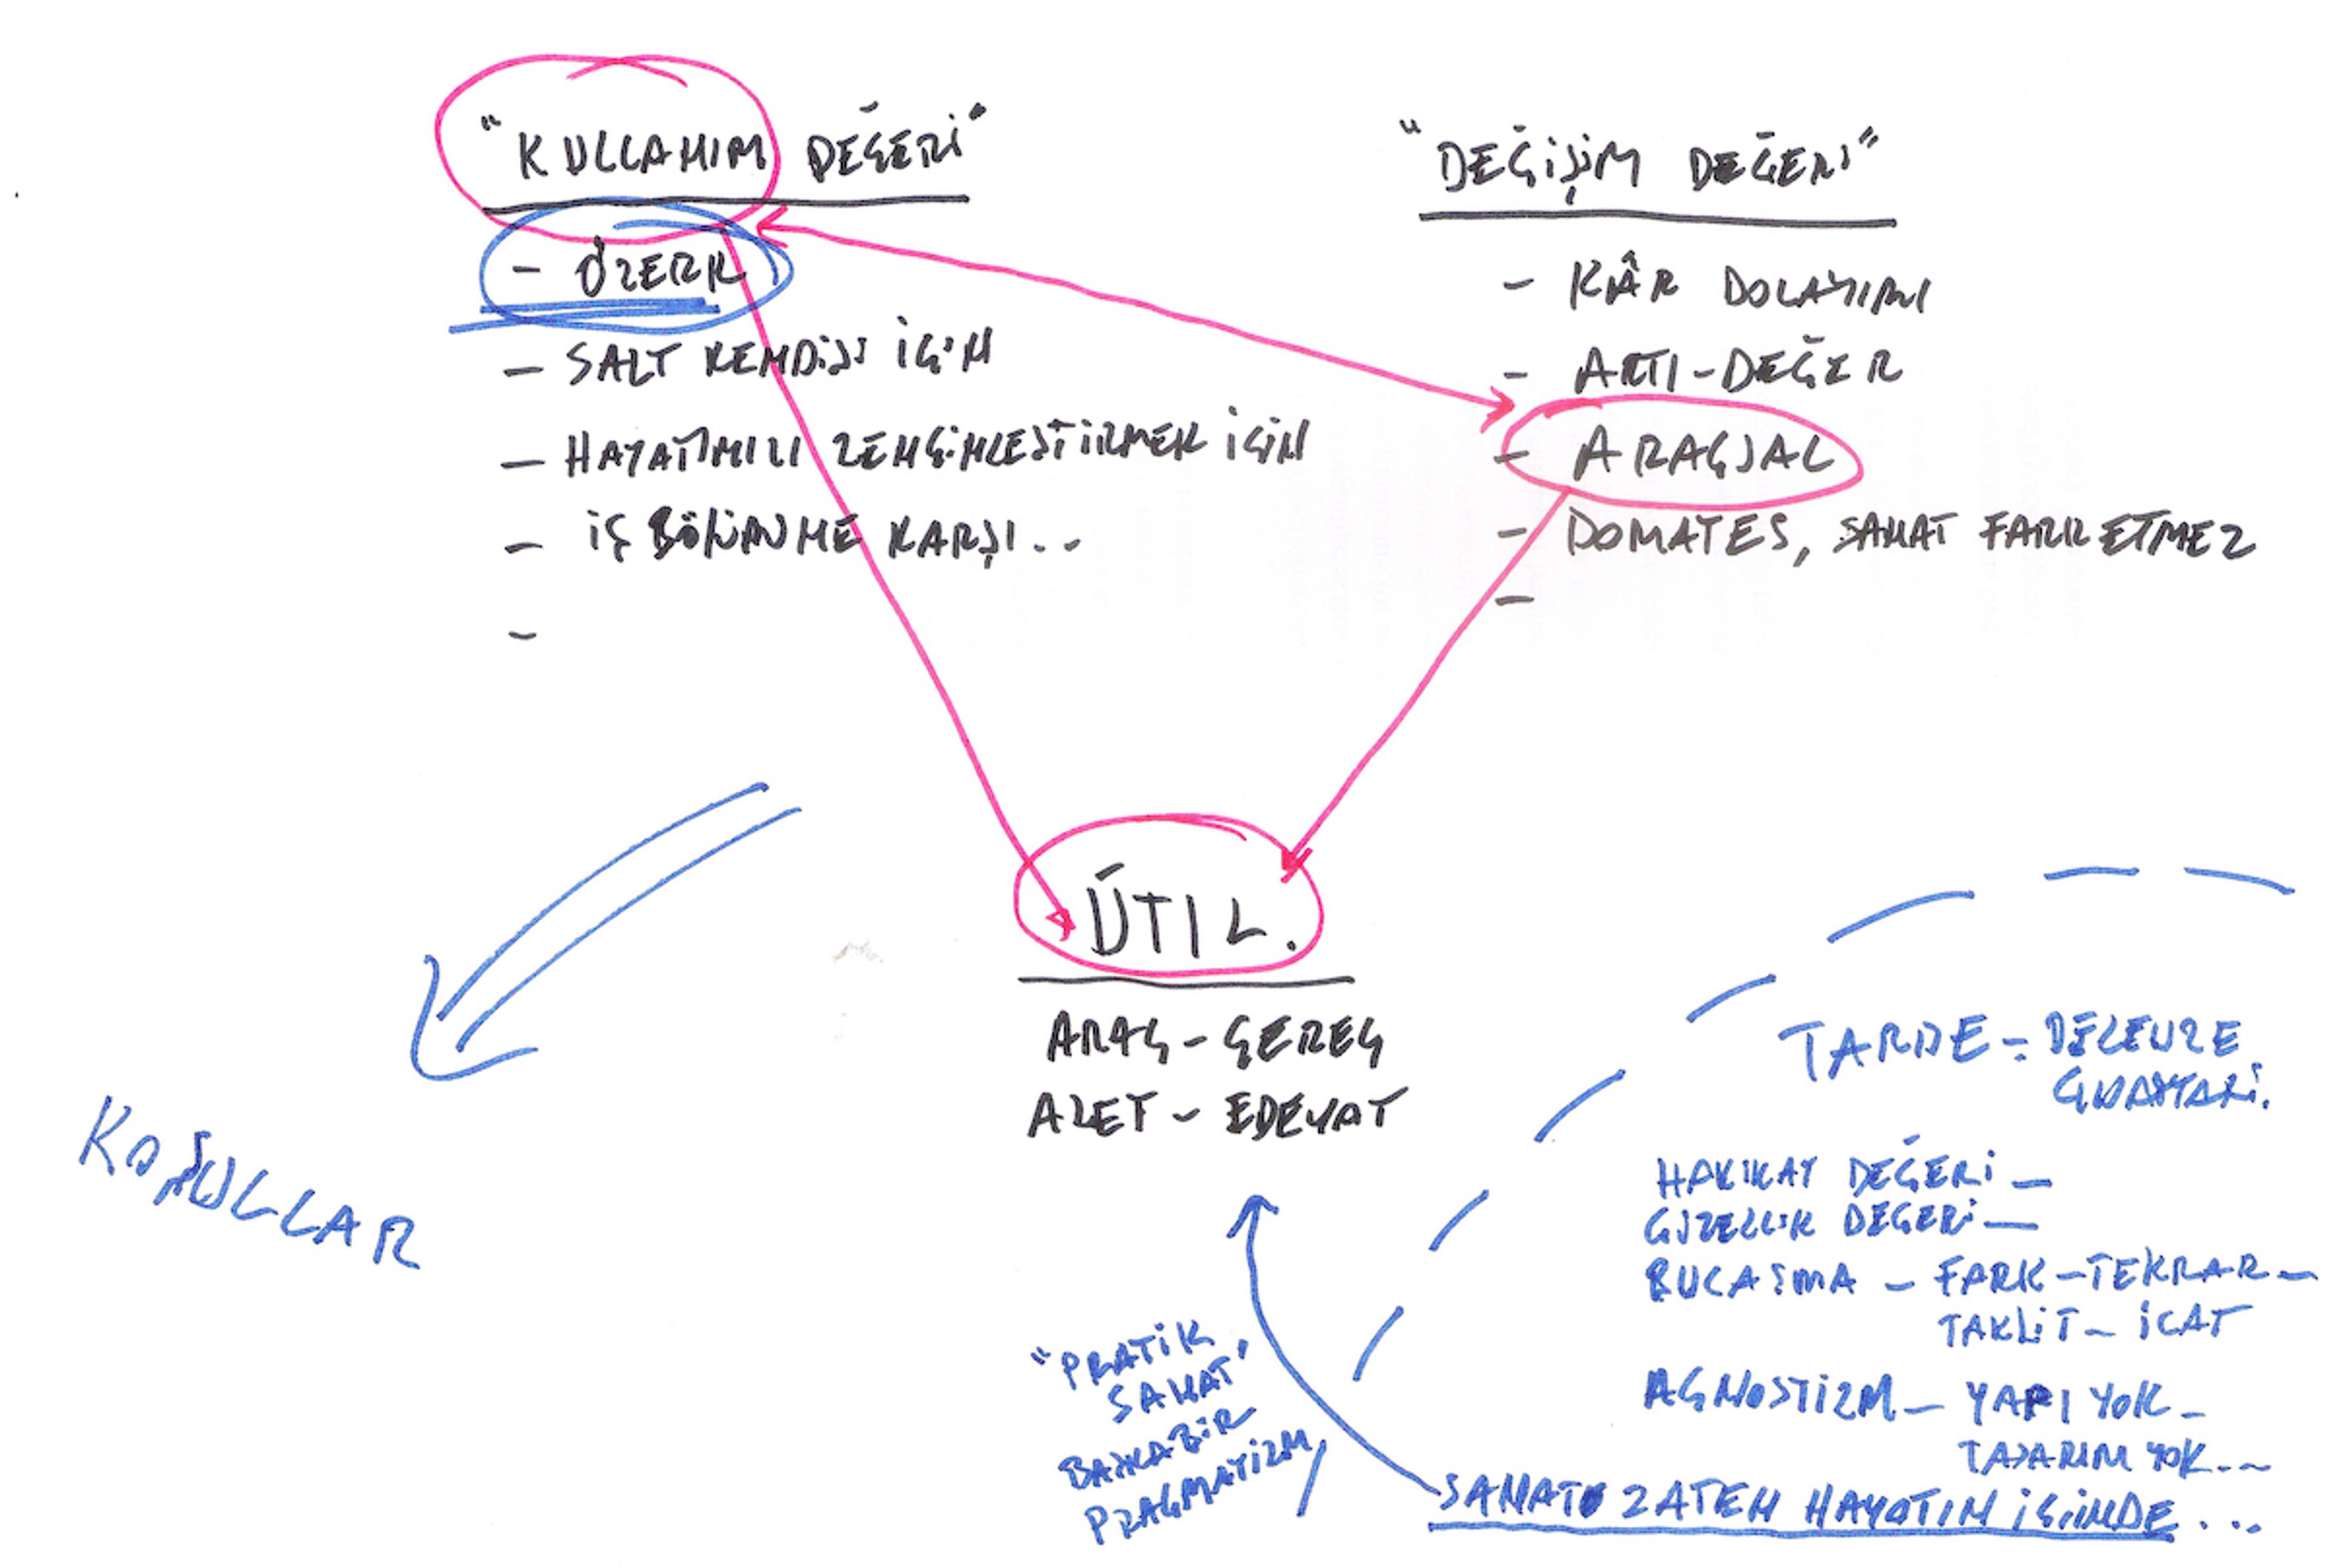 "KULLANIM DEĞERİ"
- ÖZERK
- SALT KENDİSİ İÇİN
- HAYATIMIZI ZENGİNLEŞTİRMEK İÇİN
- İŞ BÖLÜMÜNE KARŞI..
-
"DEĞİŞİM DEĞERİ"
- KÂR DOLAYIMI
- ARTI-DEĞER
- ARAÇSAL
- DOMATES, SANAT FARK ETMEZ
-
ÜTIL.
ARAÇ-GEREÇ
ALET - EDEVAT
KOŞULLAR
TARDE - DELEUZE
GUATTARİ.
HAKİKAT DEĞERİ -
GÜZELLİK DEĞERİ -
BULAŞMA - FARK-TEKRAR -
TAKLİT - İCAT
AGNOSTİZM - YAPI YOK -
TASARIM YOK...
SANAT ZATEN HAYATIN İÇİNDE...
"PRATİK
SANAT"
BAŞKA BİR
PRAGMATİZM